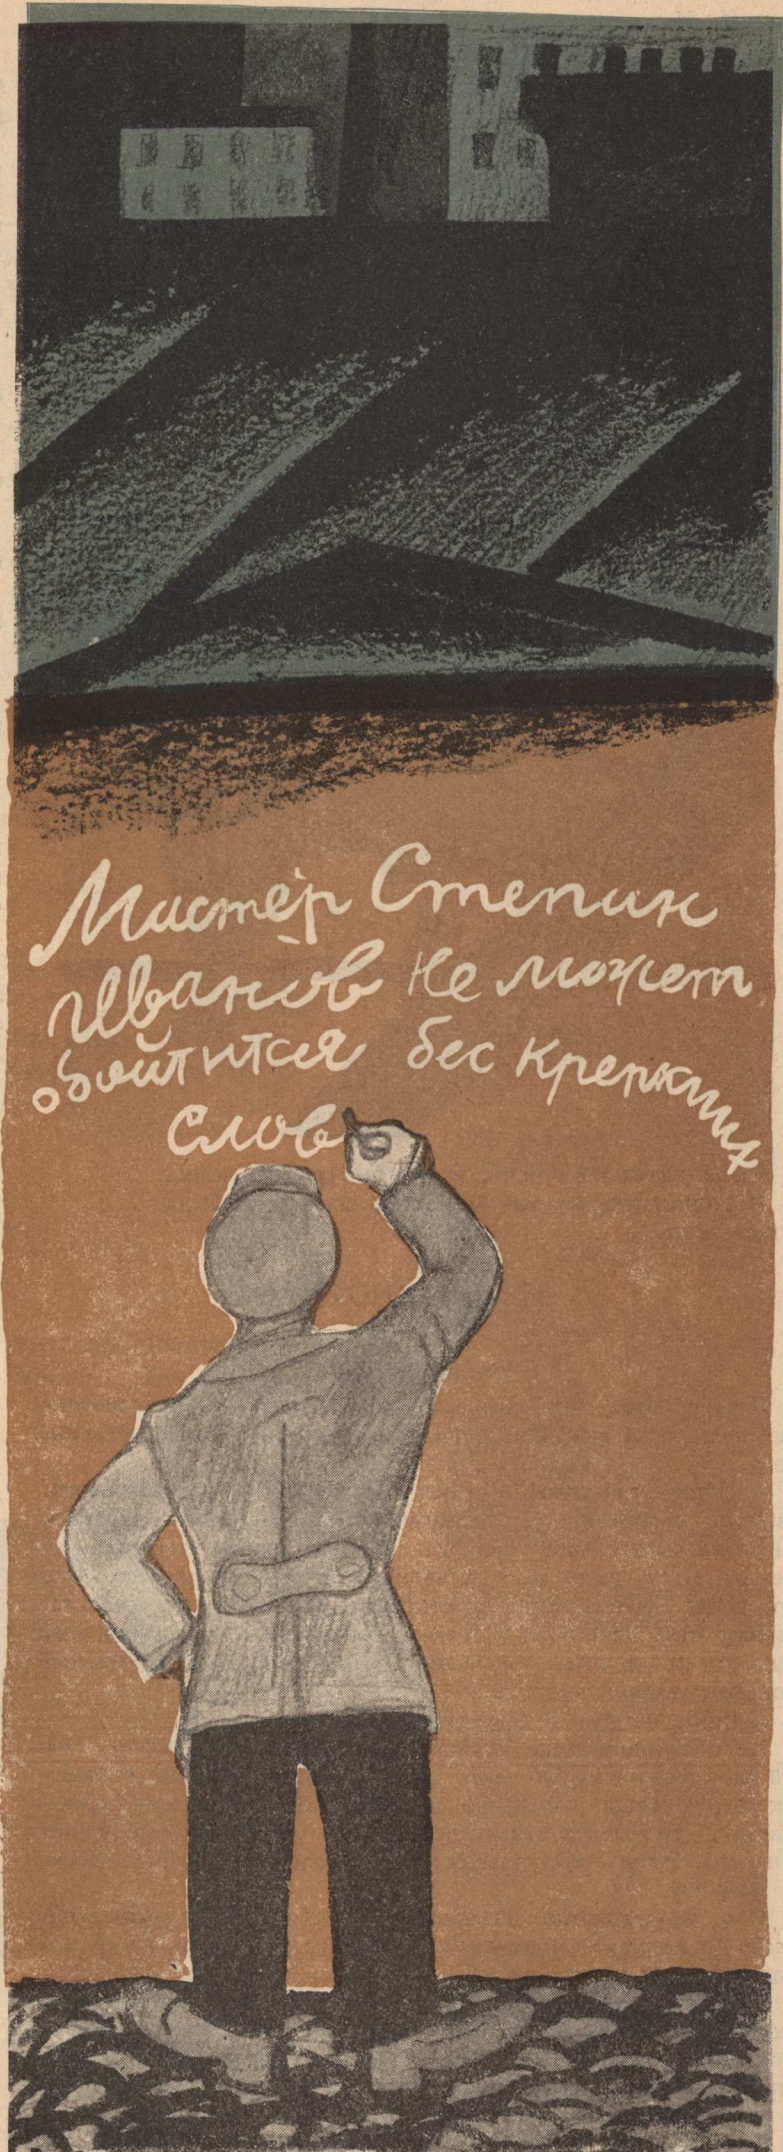 Мистер Степин
Иванов не может
обойтится бес крепких
слов